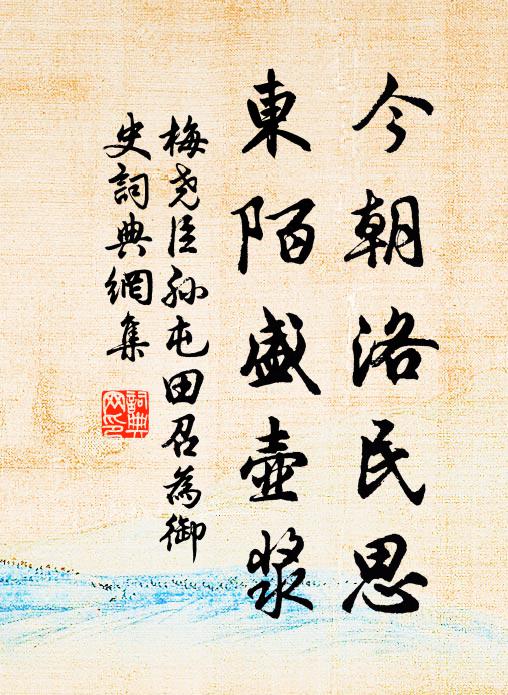 今朝洛民思
東陌盛壺漿
梅尧臣孙屯田召為御
史詞典網集
詞典
网印